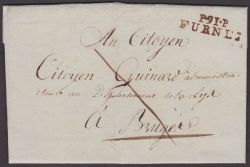 P.91.P
FURNES
Au Citoyen
Citoyen Guinard administra-
teur au Département de la Lys
à Bruges